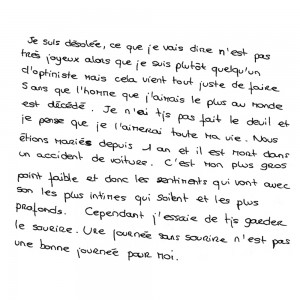 Je suis désolée, ce que je vais dire n'est pas
très joyeux alors que je suis plutôt quelqu'un
d'optiniste mais cela vient tout juste de faire
5 ans que l'homme que j'aimais le plus au monde
est décédé. Je n'ai tjs pas fait le deuil et
je pense que je l'aimerai toute ma vie. Nous
étions mariés depuis 1 an et il est mort dans
un accident de voiture. C'est mon plus gros
point faible et donc les sentiments qui vont avec
son les plus intimes qui soient et les plus
profonds. Cependant j'essaie de tjs garder
le sourire. Une journée sans sourire n'est pas
une bonne journée pour moi.